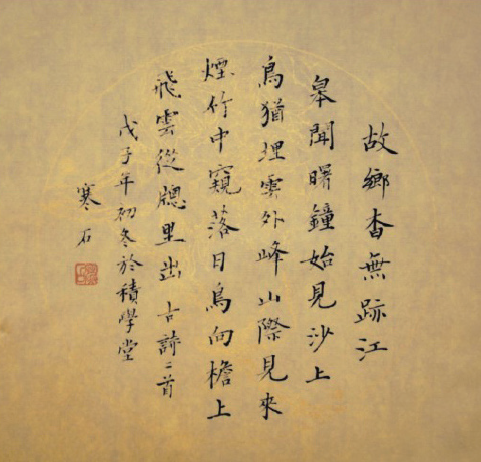 故鄉杳無跡江
皋聞曙鐘始見沙上
鳥猶埋雲外峰山際見來
煙竹中窺落日鳥向檐上
飛雲從牕里出 古詩二首
戊子年初冬於積學堂
寒石